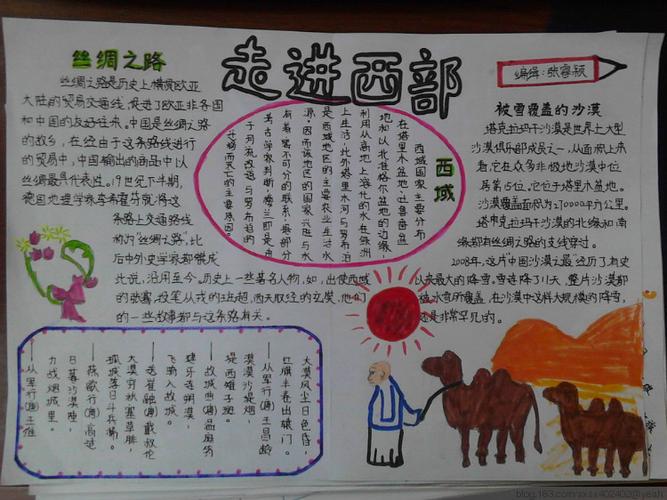 走进西部
编辑:张睿颖
丝绸之路
丝绸之路是历史上横贯欧亚
大陆的贸易交通线,促进了欧亚非各国
和中国的友好往来。中国是丝绸之路
的故乡,在经由这条路线进行
的贸易中,中国输出的商品中以
丝绸最具代表性。19世纪下半期,
德国地理学家李希霍芬就将这
条陆上交通路线
称为“丝绸之路”,此
后中外史学家都赞成
此说,沿用至今。历史上一些著名人物,如,出使西域
的张骞,投笔从戎的班超,西天取经的玄奘,他们
的一些故事都与这条路有关。
西域
西域国家主要分布
在塔里木盆地、吐鲁番盆
地和以北准格尔盆地的边缘,
利用从高地上溶化的水在绿洲
上生活,此外塔里木河与罗布泊
是西域地区的主要农业生活水
源,因而该地区的国家兴旺与水
有着密不可分的联系,据部分
考古学家判断,楼兰即是由
于河流改道与罗布泊的
干涸而灭亡的主要原因。
被雪覆盖的沙漠
塔克拉玛干沙漠是世界上大型
沙漠俱乐部成员之一,从面积上来
看,它在众多非极地沙漠中位
居第15位,它位于塔里木盆地。
沙漠覆盖面积为270000平方公里。
塔克拉玛干沙漠的北缘和南
缘都有丝绸之路的支线穿过。
2008年,这片中国沙漠经历了有史
以来最大的降雪,雪连降了11天,整片沙漠都
被冰雪所覆盖,在沙漠中这样大规模的降雪,
还是非常罕见的。
大漠风尘日色昏,
红旗半卷出辕门。
——从军行(唐)王昌龄
漠漠沙堤烟,
堤西雉子斑。
——故城曲(唐)温庭筠
建牙连朔漠,
飞骑入故城。
——送崔融(唐)戴叔伦
大漠穷秋塞草腓,
孤城落日斗兵稀。
——燕歌行(唐)高适
日暮沙漠陲,
力战烟尘里。
——从军行(唐)王维